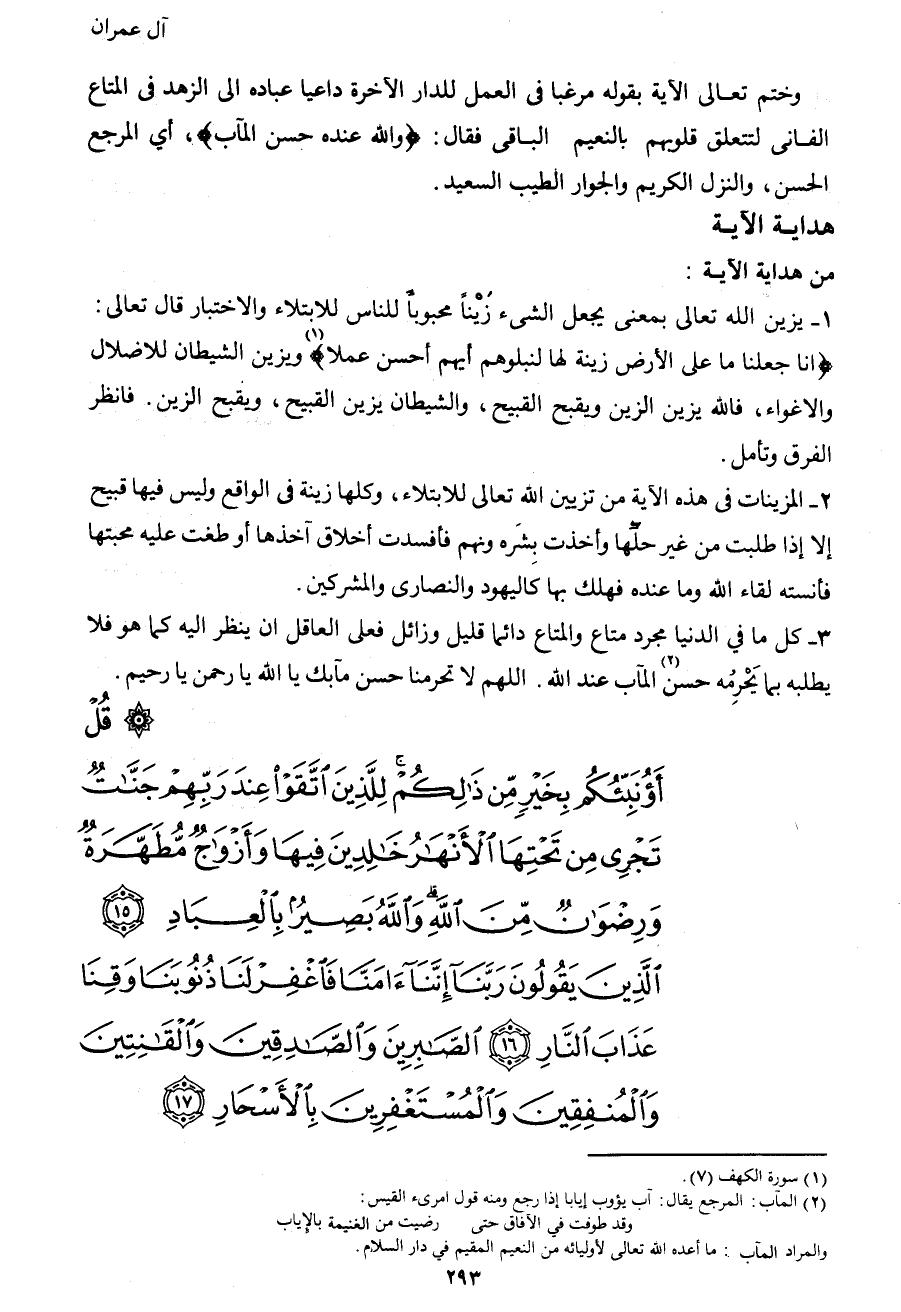 آل عمران
وختم تعـالى الآية بقوله مرغبا فى العمل للدار الآخرة داعيا عباده الى الزهد فى المتاع
الفـانى لتتعلق قلوبهم بالنعيم الباقى فقال: ﴿والله عنده حسن المآب﴾، أي المرجع
الحسن، والنزل الكريم والجوار الطيب السعيد.
هدايـة الآيـة
من هداية الآيـة :
١ـ يزين الله تعالى بمعنى يجعل الشىء زَيْناً محبوباً للناس للابتلاء والاختبار قال تعالى:
﴿انا جعلنا ما على الأرض زينة لها لنبلوهم أيهم أحسن عملا﴾(١) ويزين الشيطان للاضلال
والاغواء، فالله يزين الزين ويقبح القبيح، والشيطان يزين القبيح، ويقبح الزين. فانظر
الفرق وتأمل.
٢ـ المزينات فى هذه الآية من تزيين الله تعالى للابتلاء، وكلها زينة فى الواقع وليس فيها قبيح
إلا إذا طلبت من غير حلّها وأخذت بِشَره ونهم فأفسدت أخلاق آخذها أو طغت عليه محبتها
فأنسته لقاء الله وما عنده فهلك بها كاليهود والنصارى والمشركين.
٣ـ كل ما في الدنيا مجرد متاع والمتاع دائما قليل وزائل فعلى العاقل ان ينظر اليه كما هو فلا
يطلبه بما يَحْرِمُه حسن المآب(٢) عند الله. اللهم لا تحرمنا حسن مآبك يا الله يا رحمن يا رحيم.
۞ قُلْ
أَؤُنَبِّئُكُم بِخَيْرٍ مِّن ذَٰلِكُمْ ۚ لِلَّذِينَ ٱتَّقَوْا۟ عِندَ رَبِّهِمْ جَنَّـٰتٌ
تَجْرِى مِن تَحْتِهَا ٱلْأَنْهَـٰرُ خَـٰلِدِينَ فِيهَا وَأَزْوَٰجٌ مُّطَهَّرَةٌ
وَرِضْوَٰنٌ مِّنَ ٱللَّهِ ۗ وَٱللَّهُ بَصِيرٌۢ بِٱلْعِبَادِ ١٥
ٱلَّذِينَ يَقُولُونَ رَبَّنَآ إِنَّنَآ ءَامَنَّا فَٱغْفِرْ لَنَا ذُنُوبَنَا وَقِنَا
عَذَابَ ٱلنَّارِ ١٦ ٱلصَّـٰبِرِينَ وَٱلصَّـٰدِقِينَ وَٱلْقَـٰنِتِينَ
وَٱلْمُنفِقِينَ وَٱلْمُسْتَغْفِرِينَ بِٱلْأَسْحَارِ ١٧
(١) سورة الكهف (٧).
(٢) المآب: المرجع يقال: آب يؤوب إيابا إذا رجع ومنه قول امرىء القيس:
وقد طوفت في الآفاق حتى رضيت من الغنيمة بالإياب
والمراد المآب : ما أعده الله تعالى لأوليائه من النعيم المقيم في دار السلام.
٢٩٣